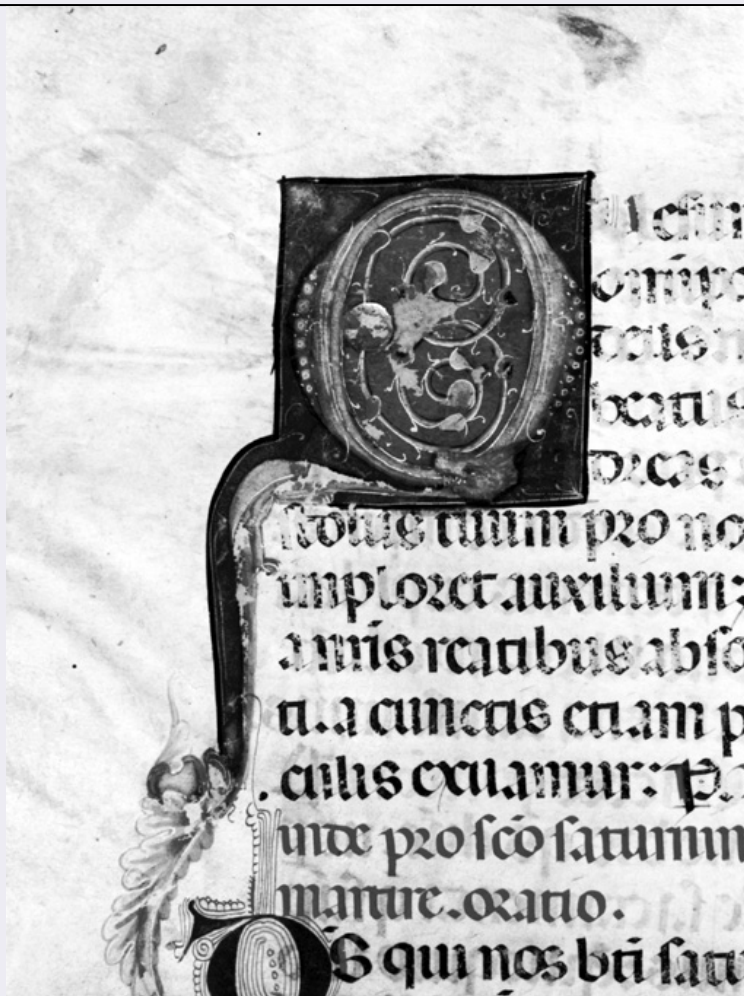 QUesum
omnipo
deus
beatus
dreas
stolus tuum pro no
imploret auxilium:
a nr̄is reatibus abso
ti. a cunctis etiam p
culis exuamur: P
inde pro sc̄o saturnin
martire. oratio.
DS qui nos bt̄i satu